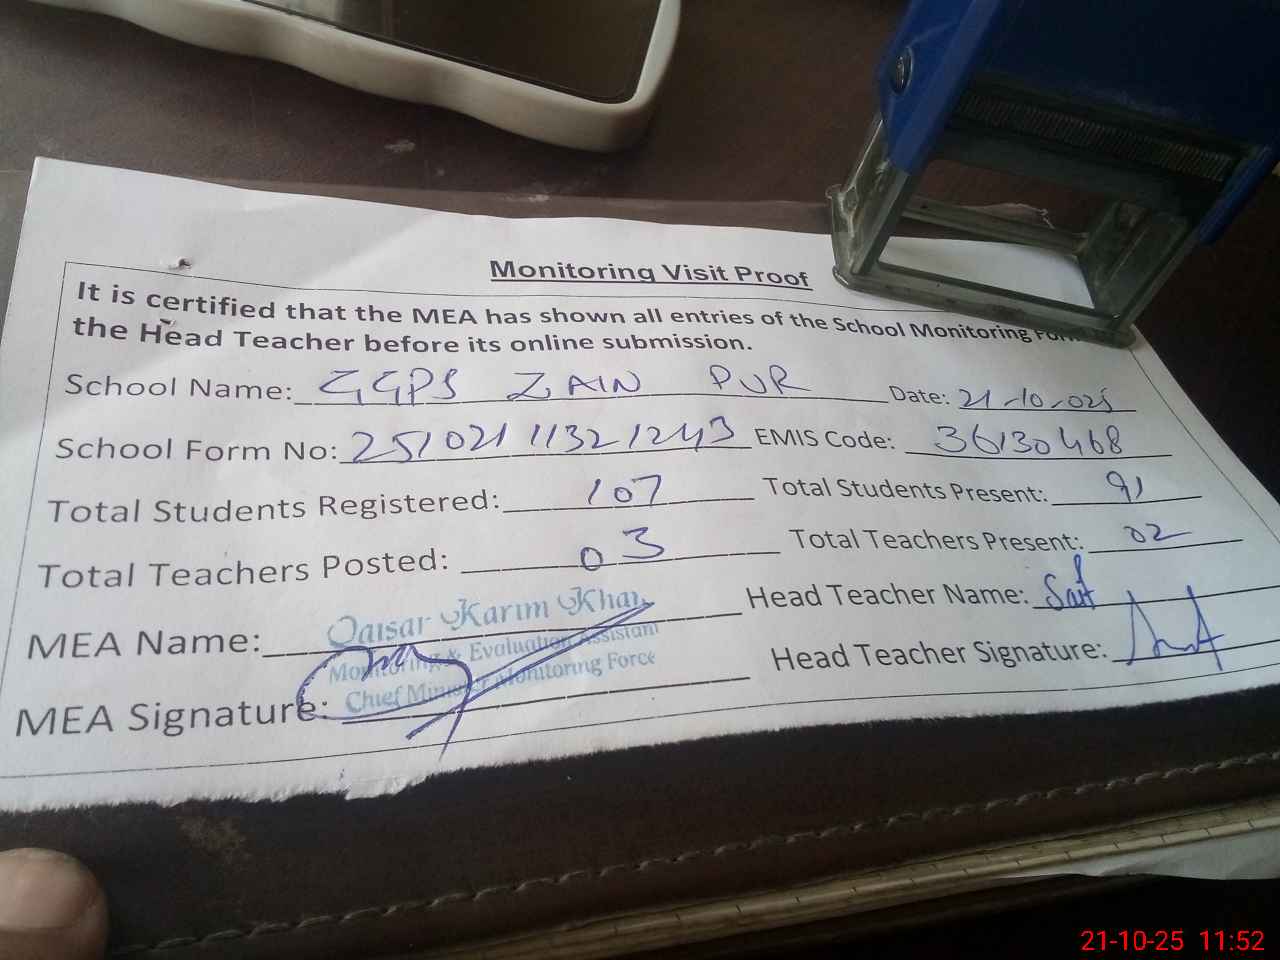 Monitoring Visit Proof
It is certified that the MEA has shown all entries of the School Monitoring
the Head Teacher before its online submission.
School Name: GGPS ZAIN PUR Date: 21-10-025
School Form No: 25102111321243 EMIS Code: 36130468
Total Students Registered: 107 Total Students Present: 91
Total Teachers Posted: 03 Total Teachers Present: 02
MEA Name: Qaisar Karim Khan Head Teacher Name:
Monitoring & Evaluation Assistant
Chief Minister Monitoring Force
MEA Signature: Head Teacher Signature:
21-10-25 11:52